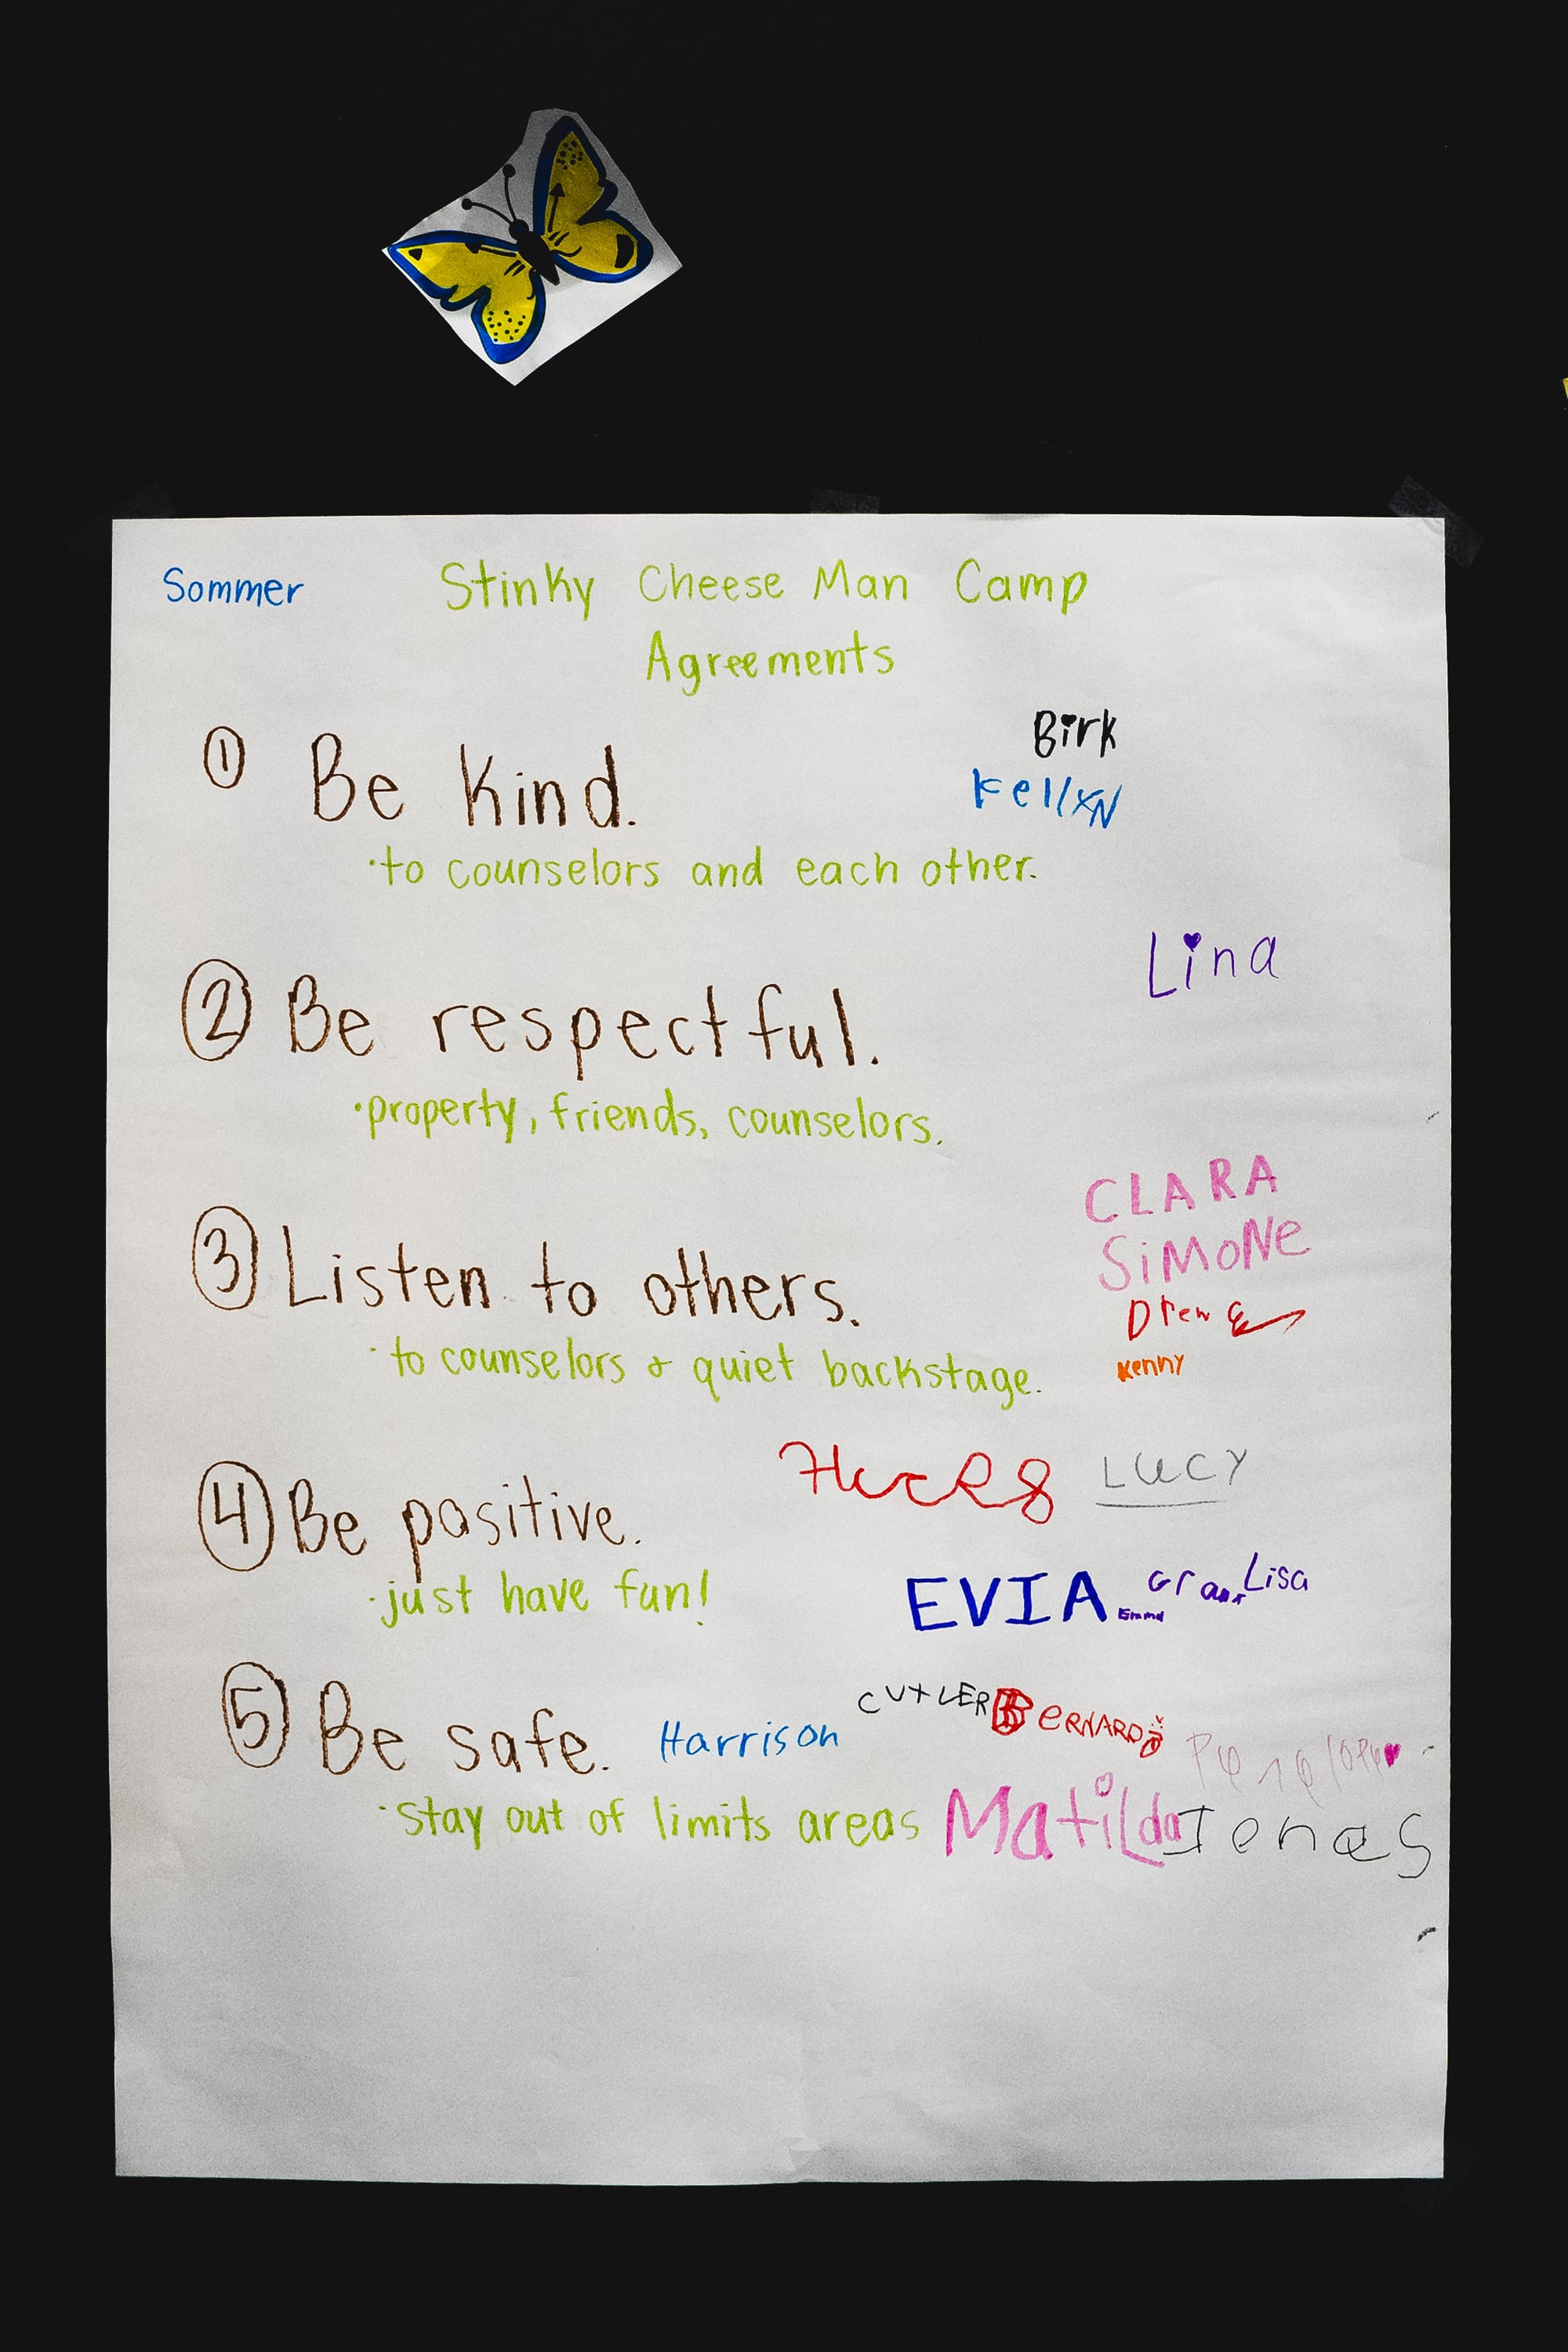 Sommer Stinky Cheese Man Camp
Agreements
Birk
① Be Kind.
·to counselors and each other.
Lina
② Be respectful.
·property, friends, counselors.
CLARA
SiMoNe
③ Listen to others.
Drew
·to counselors & quiet backstage.
Kenny
LUCY
④ Be positive.
·just have fun!
EVIA Emma Grant Lisa
CUTLER BERNARD
⑤ Be safe. Harrison
Penelope
·stay out of limits areas Matilda